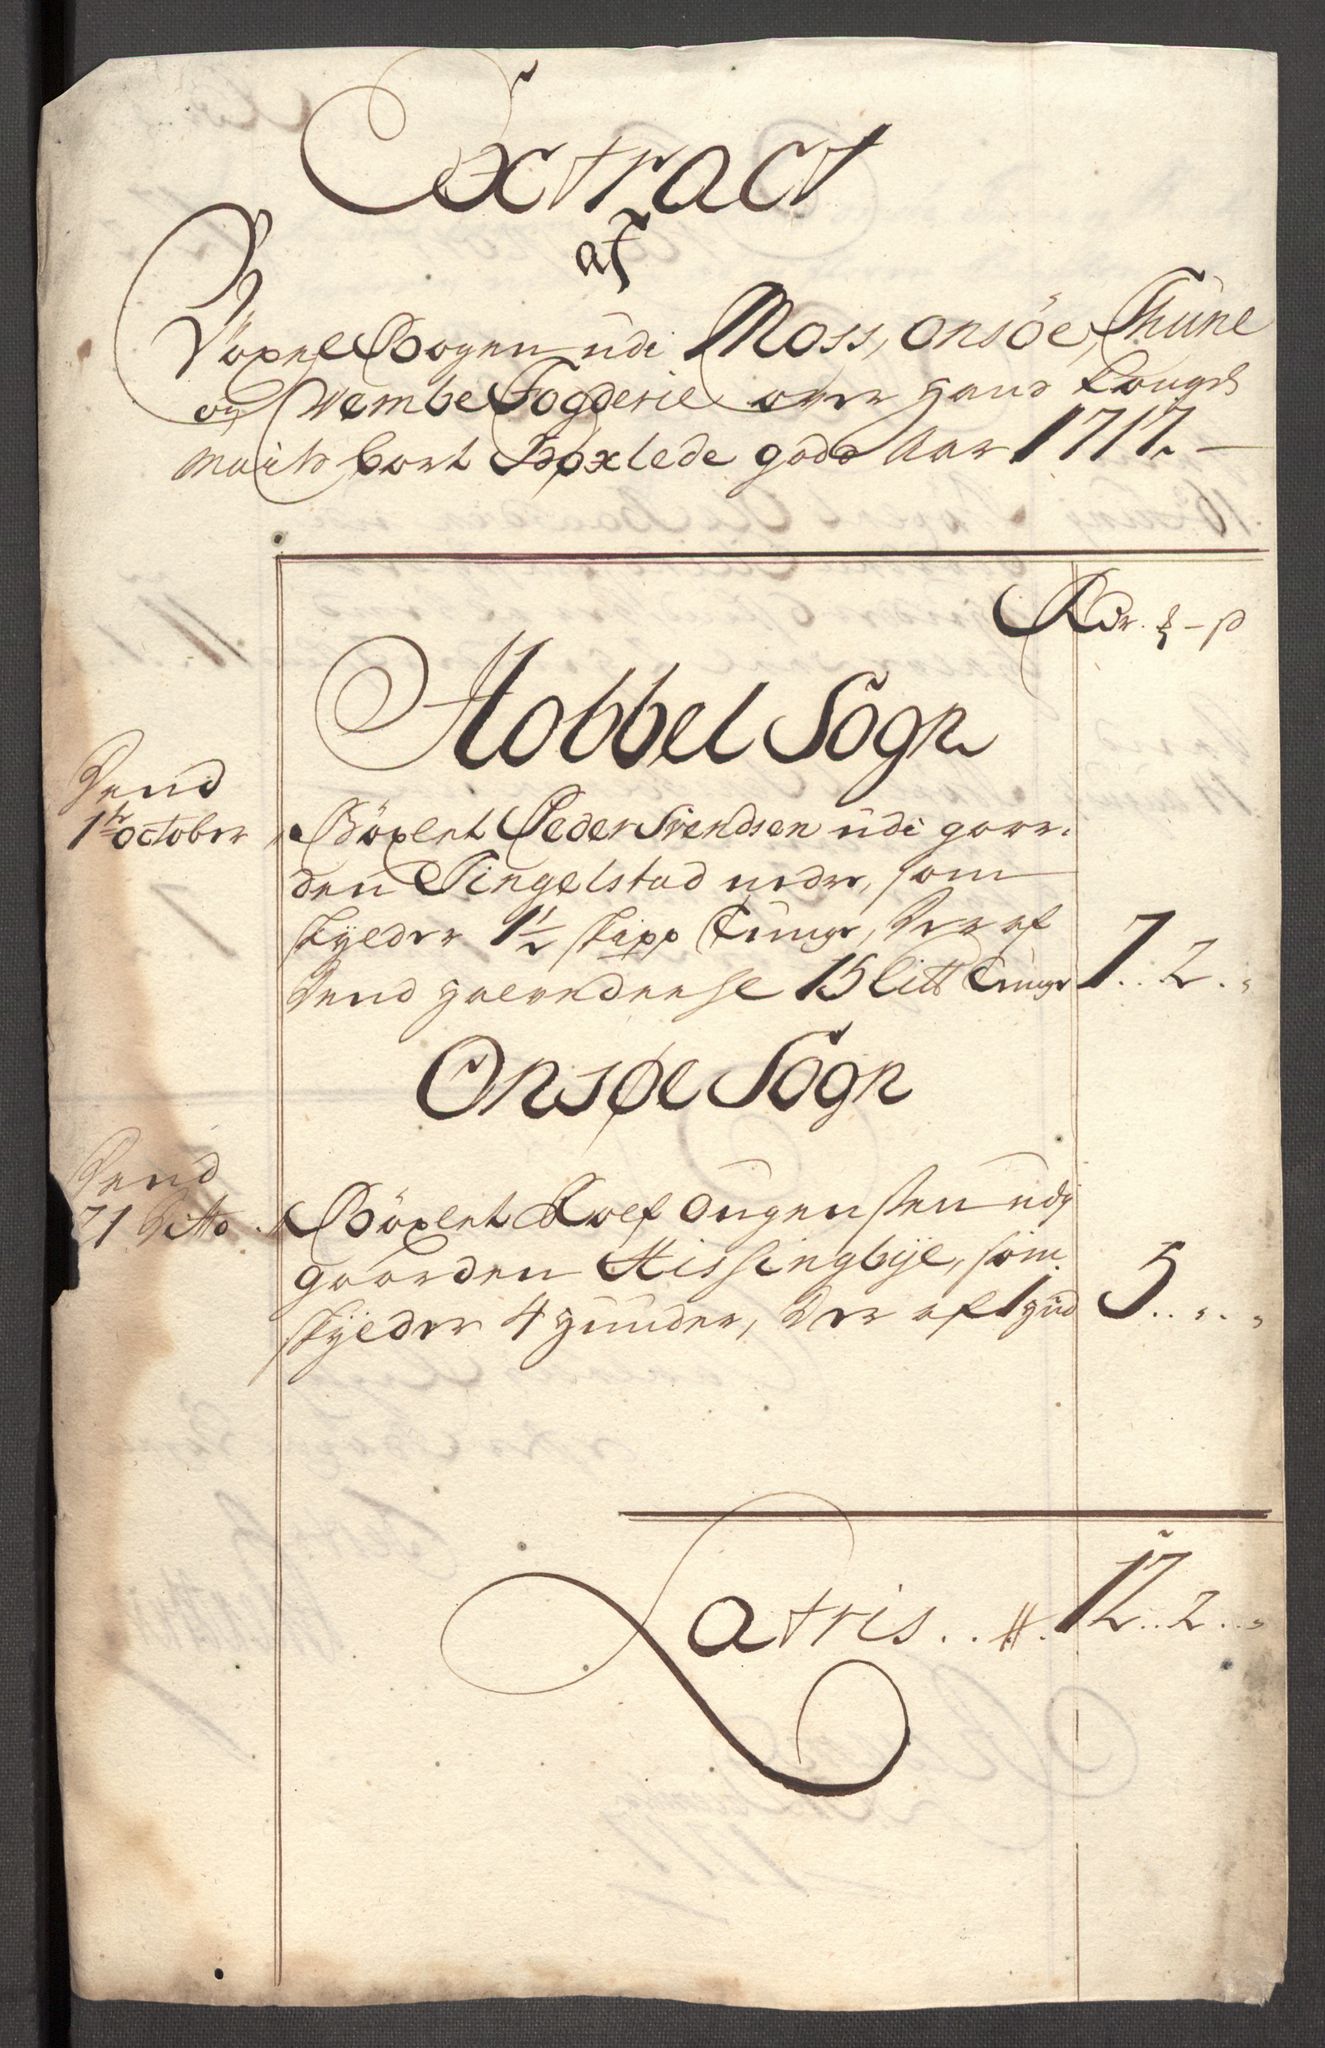 Extract
af
Böxel Bogen udi Moss, Onsöe, Thune
og Wembe Fogderie over hans Kongel
Maits bort Böxlede gods Aar 1717.
Rdr. ß
Hobbel Sogn
Dend
1te October
Böxlet Peder Svendsen udi gaar-
den Tingelstad neder, som
skylder 1½ skipp Tunge, der af
dend halvdeel 15 Litt Tunge 7 .. 2 . „
Onsøe Sogn
Dend
21 ditto
Böxlet Roef Augensen udj
gaarden Kissingbye, som
skylder 4 huuder, der af 1 hud 5 .. „ . „
Latris .. 12 .. 2 .. „